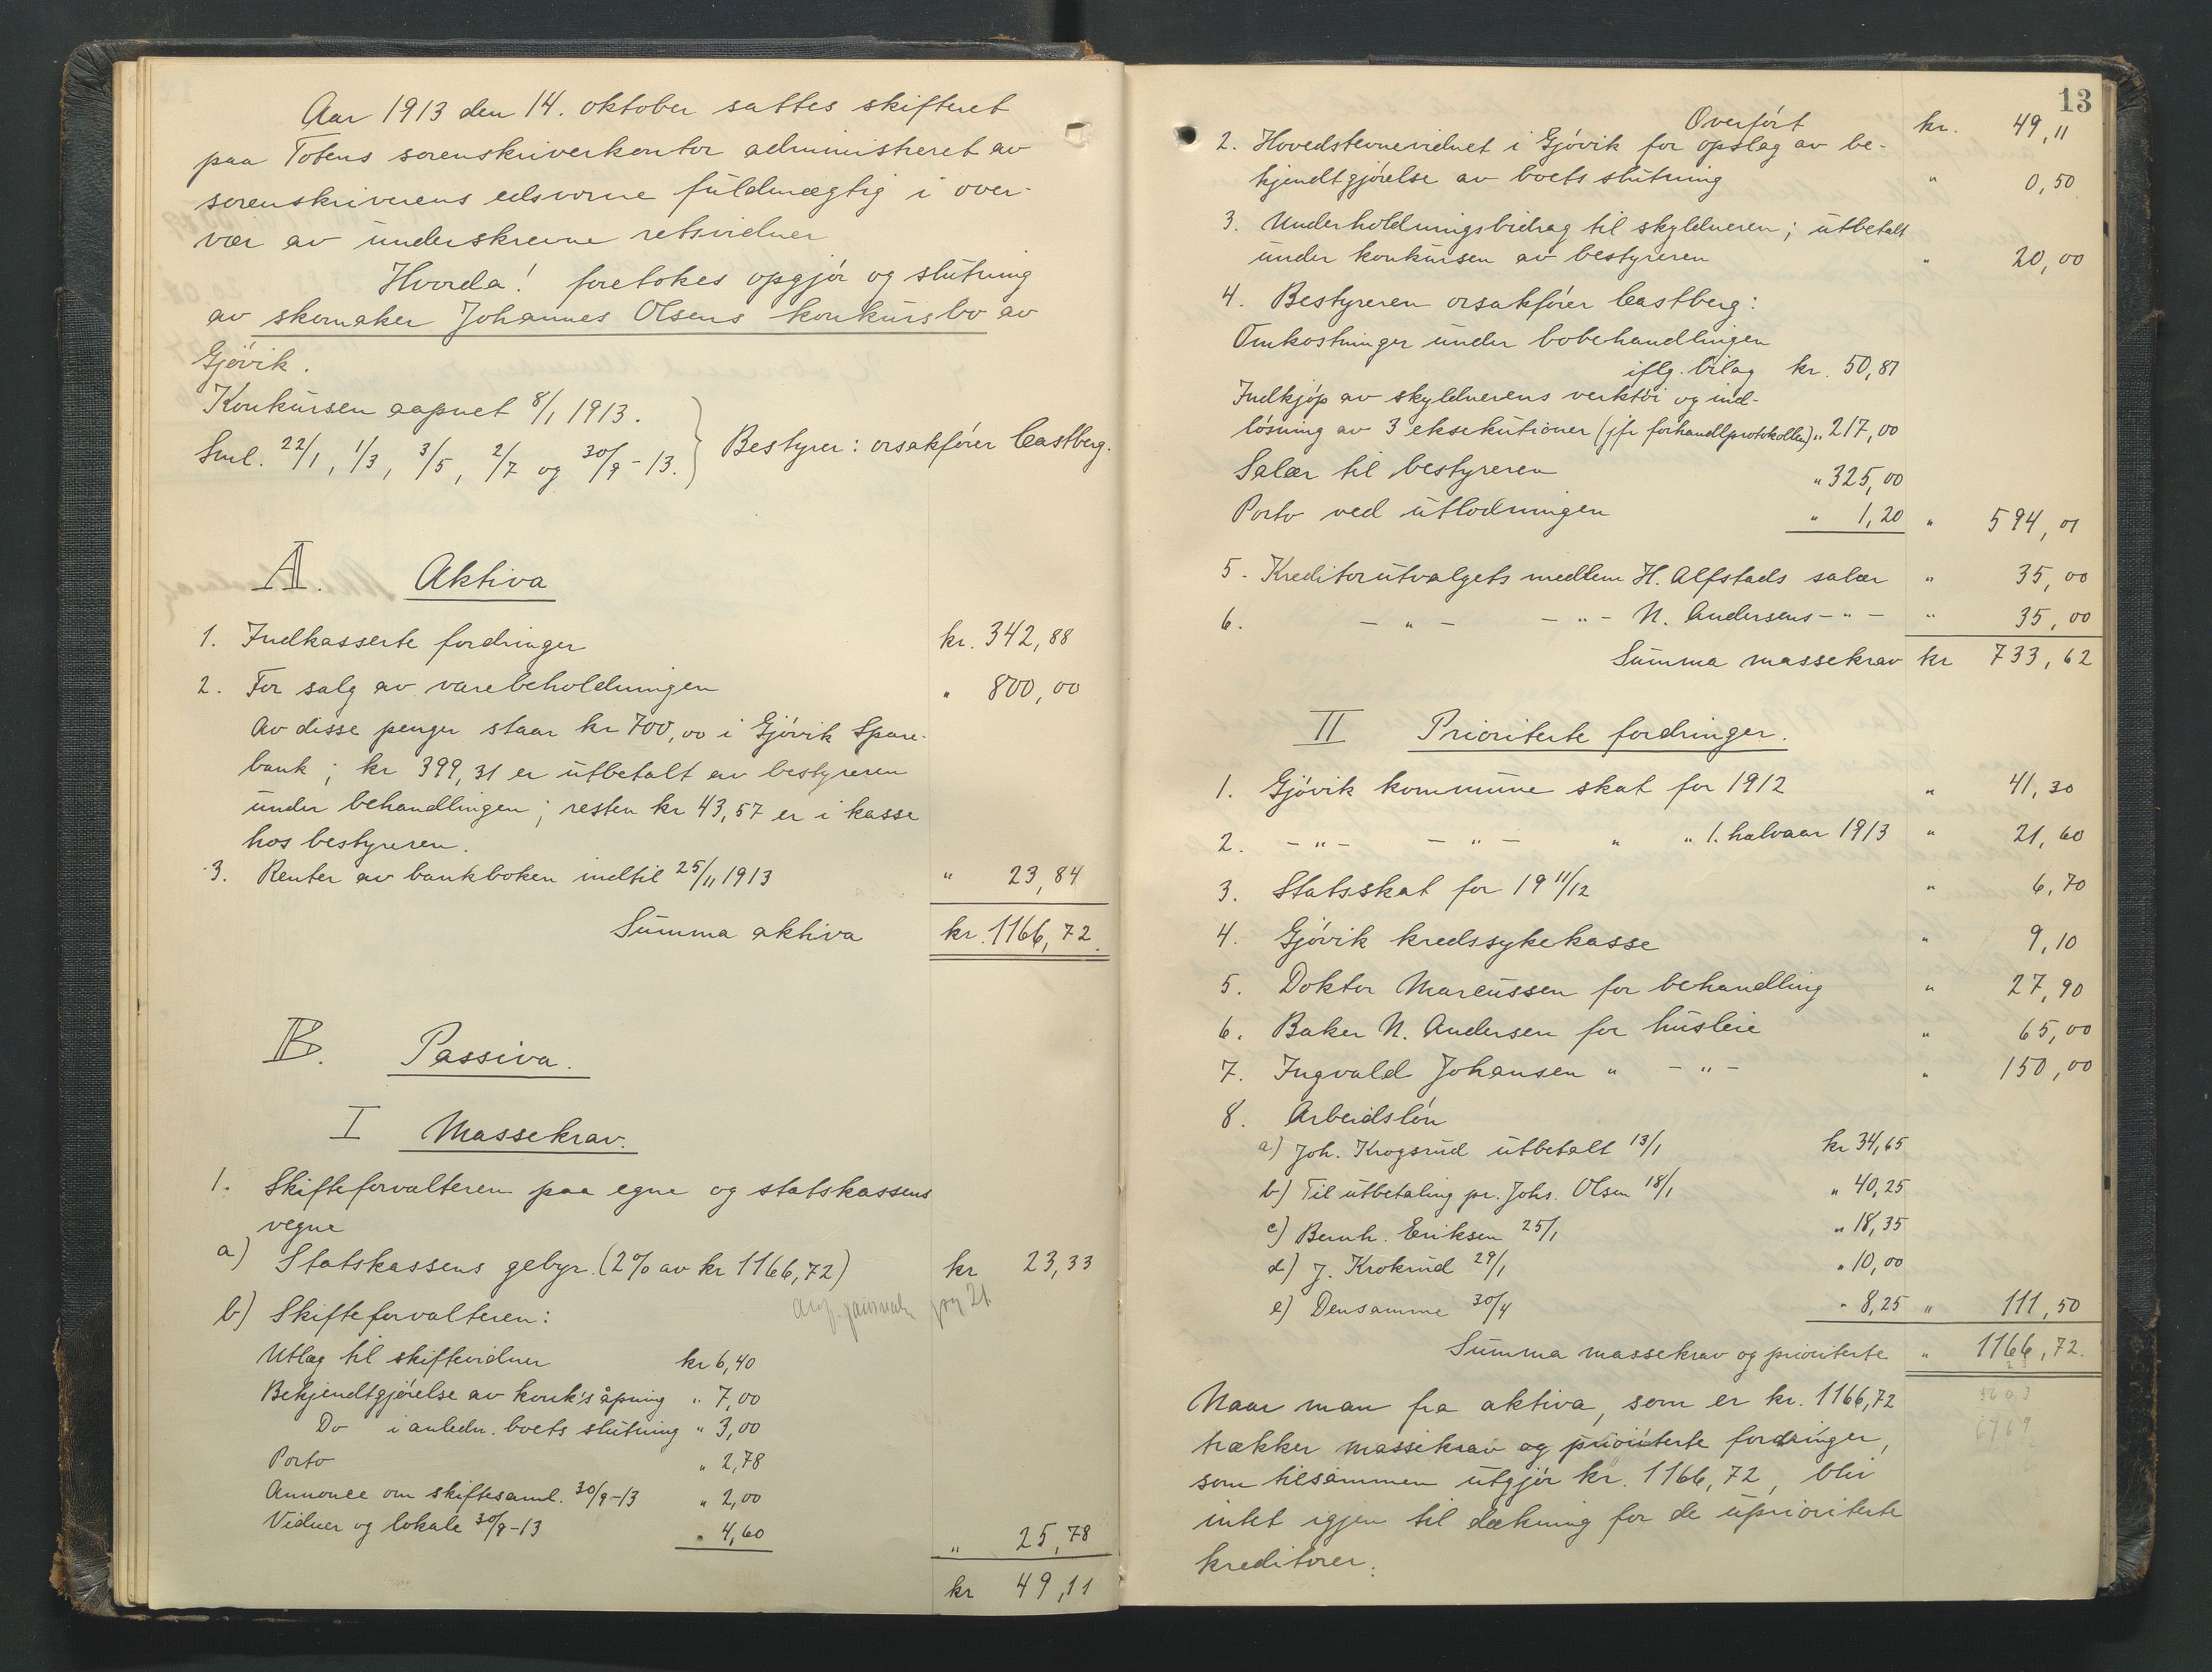 Aar 1913 den 14. oktober sattes skifteret
paa Totens sorenskriverkontor administreret av
sorenskriverens edsvorne fuldmægtig i over-
vær av underskrevne retsvidner
Hvorda! foretokes opgjør og slutning
av skomaker Johannes Olsens konkursbo av
Gjøvik.
Konkursen aapnet 8/1 1913.
Sml. 22/1, 1/3, 3/5, 2/7 og 30/9-13. } Bestyrer: orsakfører Castberg.
A. Aktiva
1. Indkasserte fordringer kr. 342,88
2. For salg av varebeholdningen " 800,00
Av disse penger staar kr 700,00 i Gjøvik Spare-
bank; kr 399,31 er utbetalt av bestyreren
under behandlingen; resten kr 43,57 er i kasse
hos bestyreren.
3. Renter av bankboken indtil 25/11 1913 " 23,84
Summa aktiva kr. 1166,72.
B. Passiva.
I Massekrav.
1. Skifteforvalteren paa egne og statskassens
vegne
a) Statskassens gebyr. (2% av kr 1166,72) kr 23,33
b) Skifteforvalteren:
Utlæg til skiftevidner kr 6,40
Bekjendtgjørelse av konk's åpning " 7,00
Do i anledn. boets slutning " 3,00
Porto " 2,78
Annonce om skiftesaml. 30/9-13 " 2,00
Vidner og lokale 30/9-13 " 4,60
" 25,78
kr 49,11
13
Overført kr. 49,11
2. Hovedstevnevidnet i Gjøvik for opslag av be-
kjendtgjørelse av boets slutning " 0,50
3. Underholdningsbidrag til skyldneren; utbetalt
under konkursen av bestyreren " 20,00
4. Bestyreren orsakfører Castberg:
Omkostninger under bobehandlingen
iflg. bilag kr. 50,81
Indkjøp av skyldnerens verktøi og ind-
løsning av 3 eksekutioner (jfr forhandlprotokollen) " 217,00
Salær til bestyreren " 325,00
Porto ved utlodningen " 1,20 " 594,01
5. Kreditorutvalgets medlem H. Alfstads salær " 35,00
6. - " - - " - N. Andersens - " - " 35,00
Summa massekrav kr 733,62
II Prioriterte fordringer.
1. Gjøvik kommune skat for 1912 " 41,30
2. - " - - " - " " 1. halvaar 1913 " 21,60
3. Statsskat for 1911/12 " 6,70
4. Gjøvik kredssykekasse " 9,10
5. Doktor Marcussen for behandling " 27,90
6. Baker N. Andersen for husleie " 65,00
7. Ingvald Johansen " - " - " 150,00
8. Arbeidsløn
a) Joh. Krogsrud utbetalt 13/1 kr 34,65
b) Til utbetaling pr. Johs. Olsen 18/1 " 40,25
c) Bernh. Eriksen 25/1 " 18,35
d) J. Krokrud 29/1 " 10,00
e) Densamme 30/4 " 8,25 " 111,50
Summa massekrav og prioriterte " 1166,72.
Naar man fra aktiva, som er kr. 1166,72
trækker massekrav og prioriterte fordringer,
som tilsammen utgjør kr. 1166,72, blir
intet igjen til dækning for de uprioriterte
kreditorer.